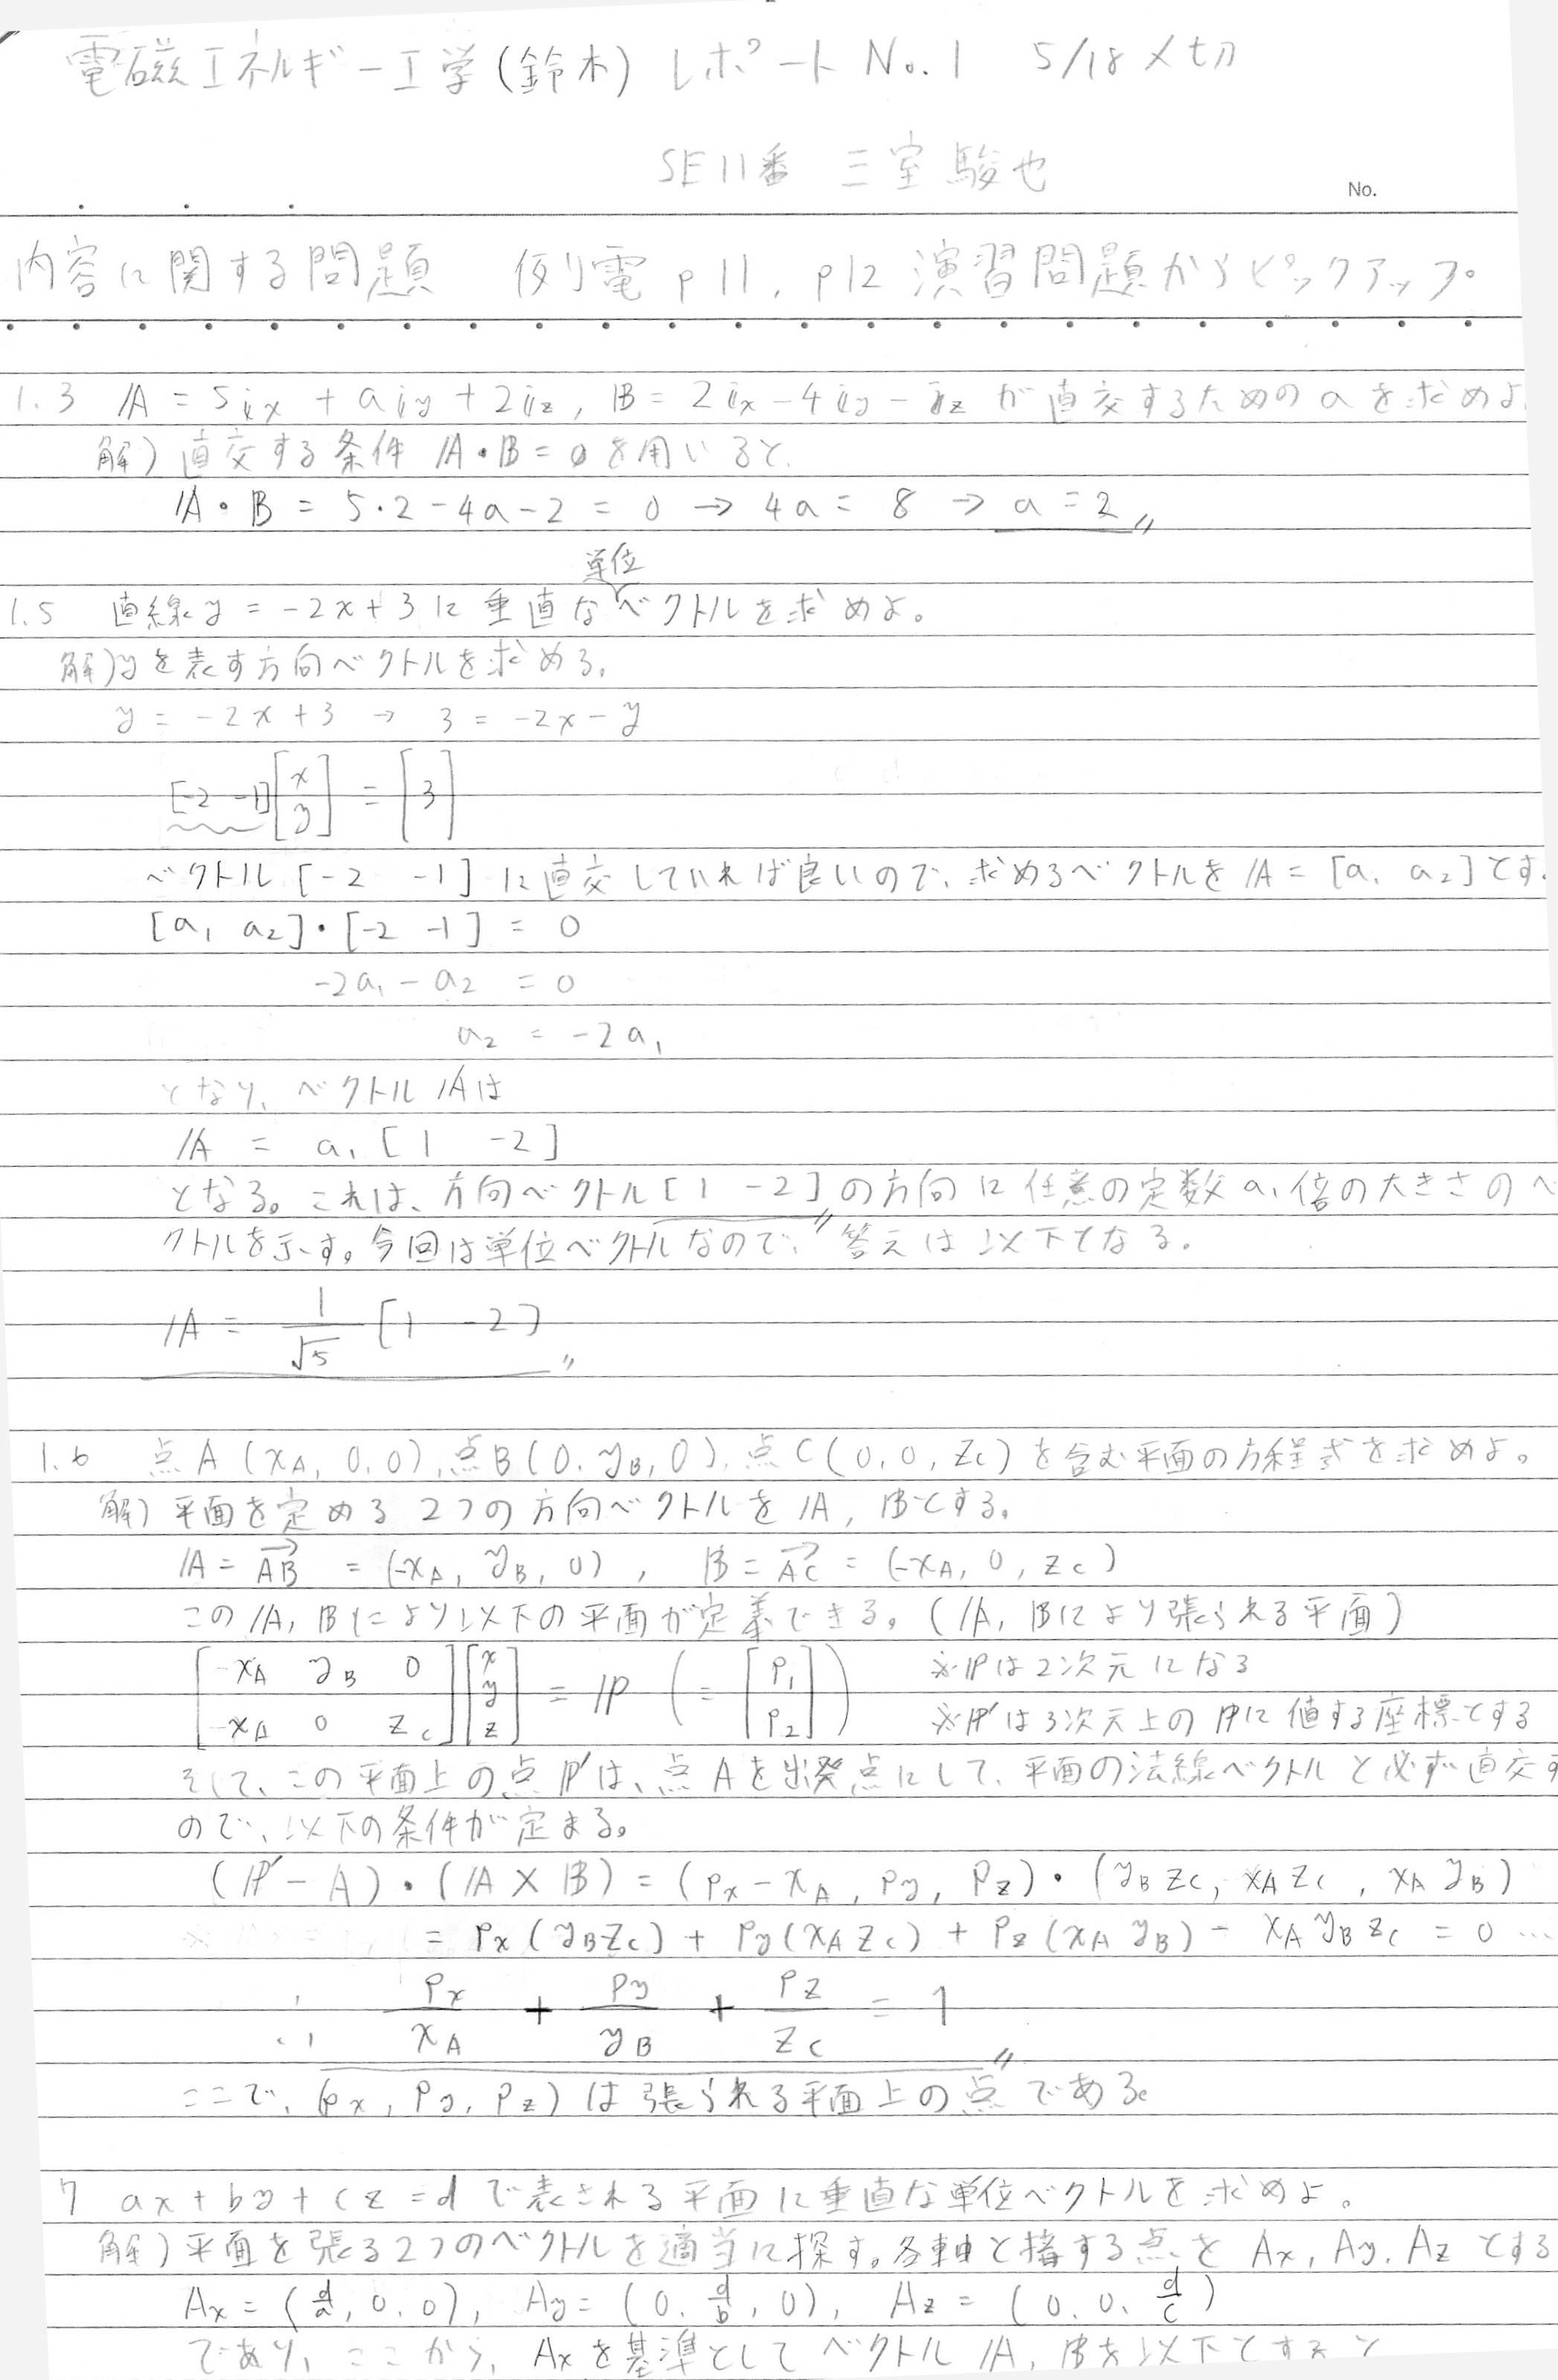 電磁エネルギー工学(鈴木) レポート No.1 5/18〆切
5E11番 三室 駿也
No.
内容に関する問題 例)電 p11, p12 演習問題からピックアップ。
1.3 𝔸 = 5𝕚x + a𝕚y + 2𝕚z, 𝔹 = 2𝕚x - 4𝕚y - 𝕚z が直交するための a を求めよ
解) 直交する条件 𝔸・𝔹 = 0 を用いると、
𝔸・𝔹 = 5・2 - 4a - 2 = 0 → 4a = 8 → a = 2 〃
1.5 直線 y = -2x + 3 に垂直な単位ベクトルを求めよ。
解) yを表す方向ベクトルを求める。
y = -2x + 3 → 3 = -2x - y
[-2 -1] [x y] = [3]
ベクトル [-2 -1] に直交していれば良いので、求めるベクトルを 𝔸 = [a₁ a₂] とす.
[a₁ a₂]・[-2 -1] = 0
-2a₁ - a₂ = 0
a₂ = -2a₁
となり、ベクトル 𝔸 は
𝔸 = a₁ [1 -2]
となる。これは、方向ベクトル [1 -2] の方向に任意の定数 a₁ 倍の大きさのベ
クトルを示す。今回は単位ベクトルなので、答えは以下となる。
𝔸 = 1/√5 [1 -2] 〃
1.6 点A (xA, 0, 0), 点B (0, yB, 0), 点C (0, 0, zC) を含む平面の方程式を求めよ。
解) 平面を定める2つの方向ベクトルを 𝔸, 𝔹 とする。
𝔸 = AB→ = (-xA, yB, 0), 𝔹 = AC→ = (-xA, 0, zC)
この 𝔸, 𝔹 により以下の平面が定義できる。(𝔸, 𝔹 により張られる平面)
[-xA yB 0 / -xA 0 zC] [x y z] = ℙ (= [p₁ p₂]) ※ℙは2次元になる
※ℙ'は3次元上のℙに値する座標とする
そして、この平面上の点 ℙ' は、点 A を出発点にして、平面の法線ベクトルと必ず直交す
ので、以下の条件が定まる。
(ℙ' - A)・(𝔸 × 𝔹) = (px - xA, py, pz)・(yB zC, xA zC, xA yB)
= px (yB zC) + py (xA zC) + pz (xA yB) - xA yB zC = 0 …
∴ px/xA + py/yB + pz/zC = 1 〃
ここで、(px, py, pz) は張られる平面上の点である。
7 ax + by + cz = d で表される平面に垂直な単位ベクトルを求めよ。
解) 平面を張る2つのベクトルを適当に探す。各軸と接する点を Ax, Ay, Az とする
Ax = (d/a, 0, 0), Ay = (0, d/b, 0), Az = (0, 0, d/c)
であり、ここから、Ax を基準としてベクトル 𝔸, 𝔹 を以下とすると